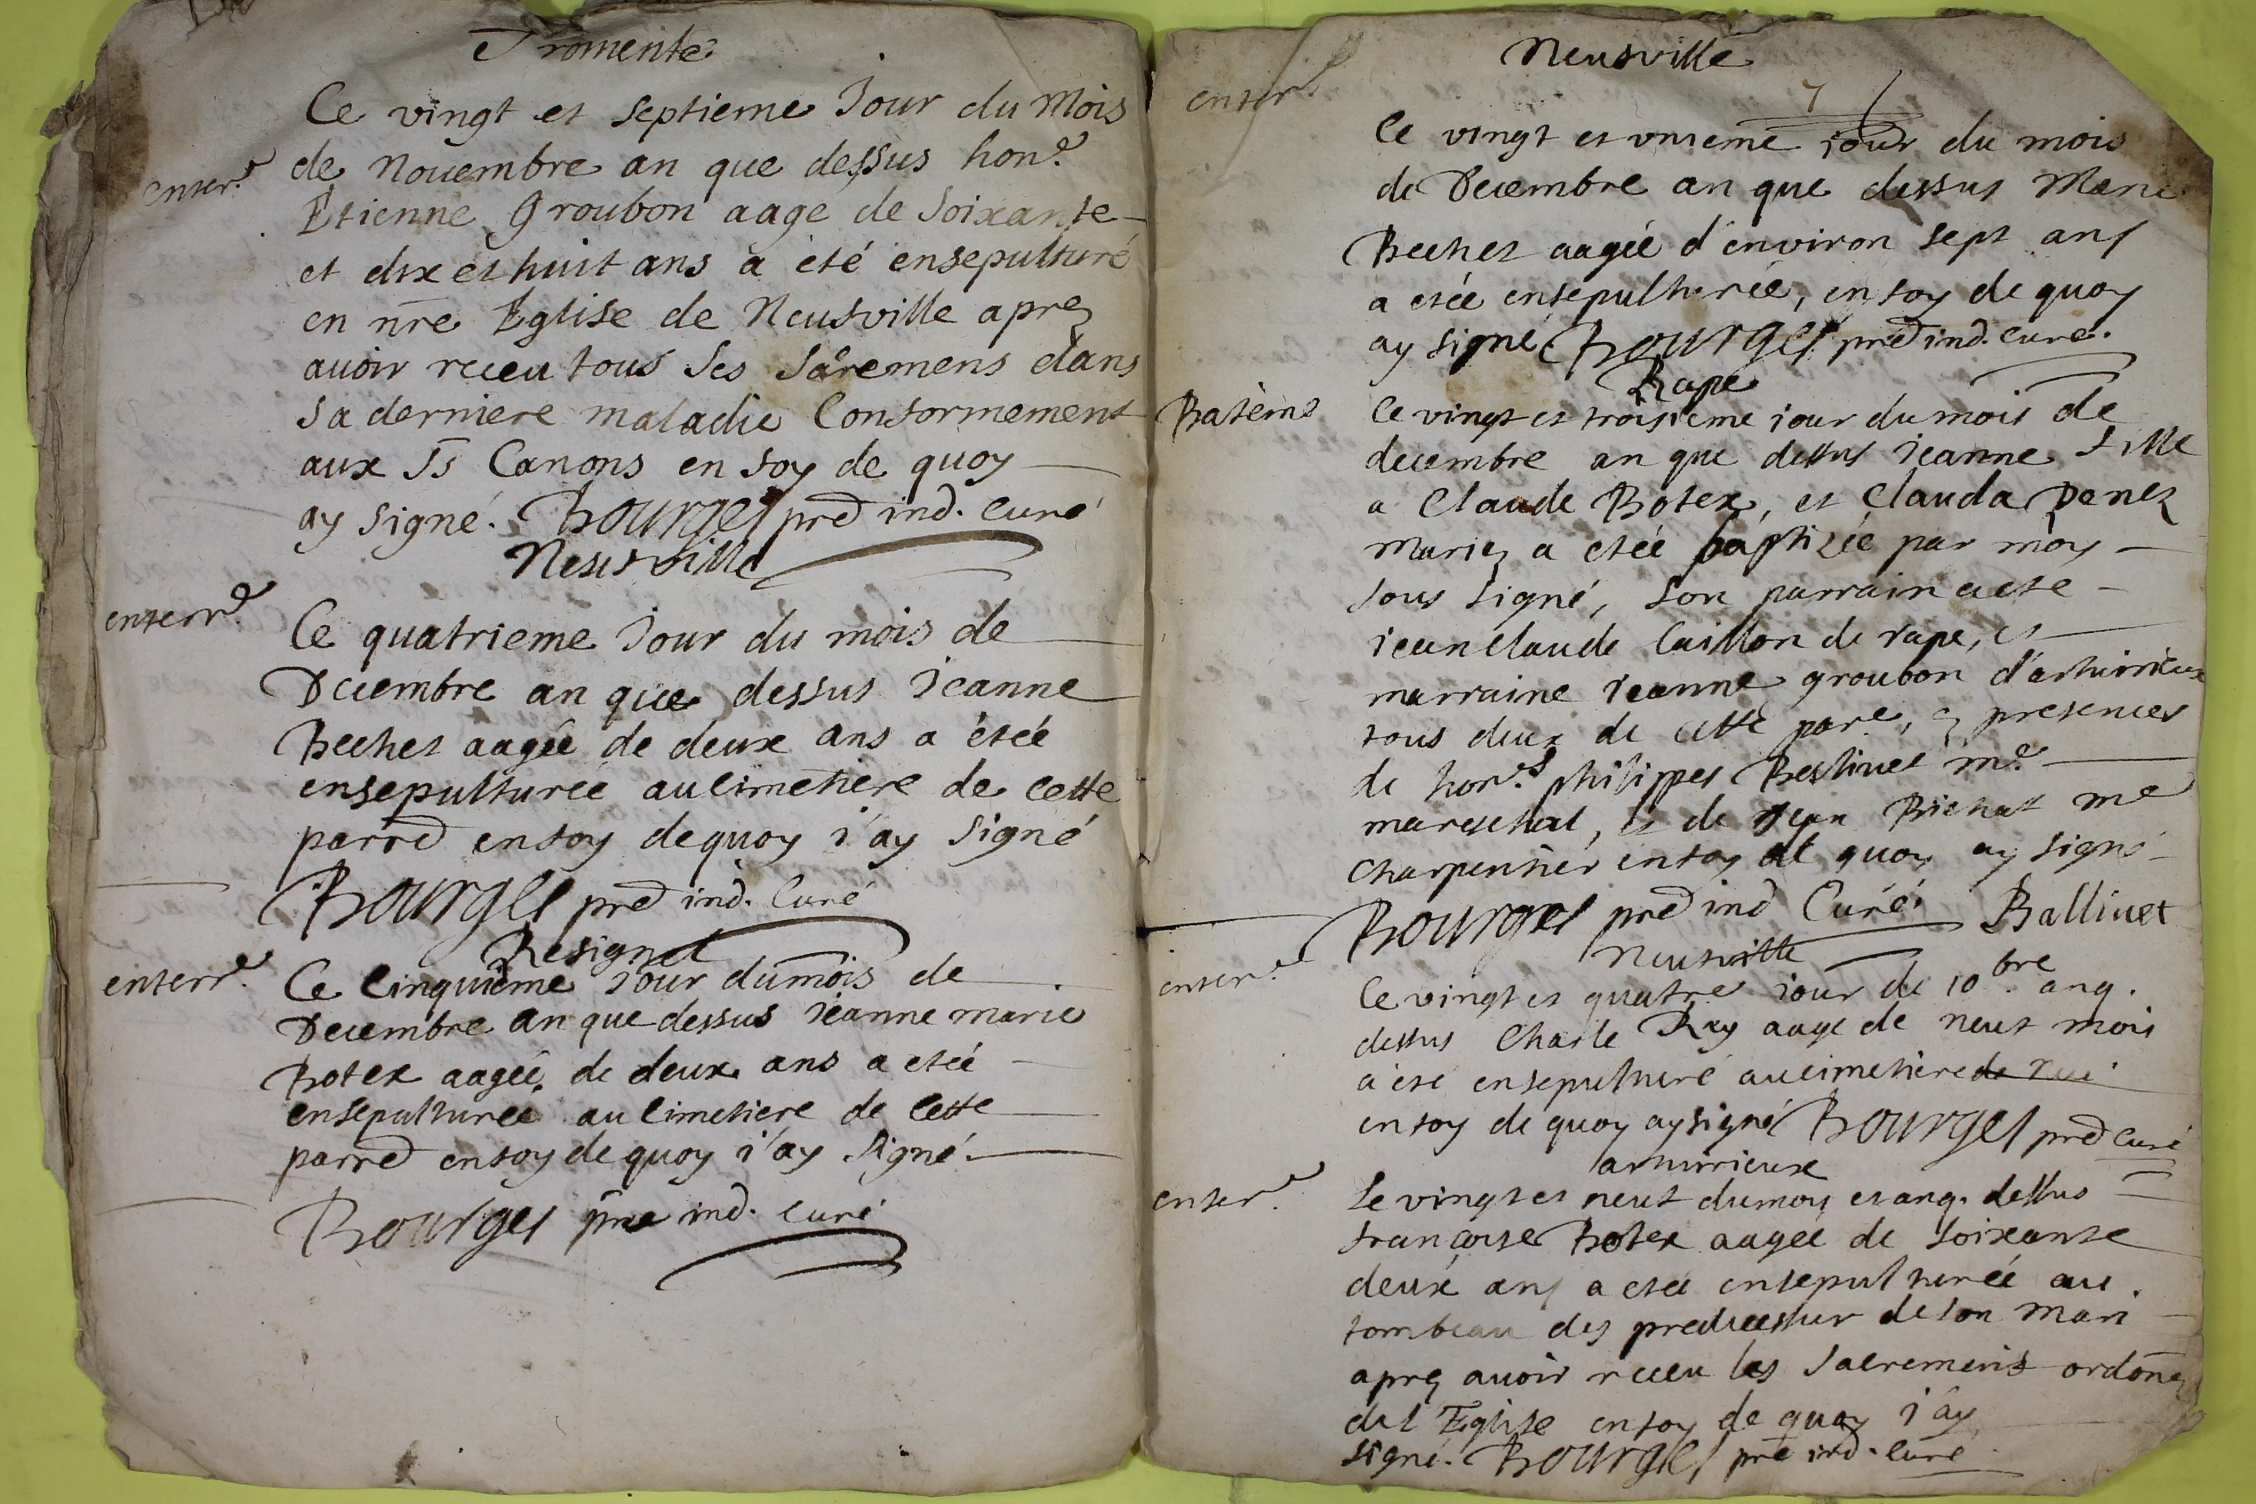 Tromente
Ce vingt et septieme Jour du Mois
enterr.e de Nouembre an que dessus hon.e
Etienne Groubon aage de Soixante
et dix et huit ans a été ensepulturé
en nre Eglise de Neusville aprez
auoir receu tous Ses Sâremens dans
Sa derniere maladie Conformement
aux SS Canons en foy de quoy
ay Signé. Bourges pred ind. Curé
Neusville
enterr.e Ce quatrieme Jour du mois de
Decembre an que dessus Jeanne
Bechet aagée de deux ans a étée
ensepulturée au Cimetiere de Cette
parred en foy de quoy j'ay Signé
Bourges pred ind. Curé
Resignel
enterr.e Ce Cinquieme Jour du mois de
Decembre an que dessus Jeanne marie
Botex aagée de deux ans a etéé
ensepulturéé au Cimetiere de Cette
parred en foy de quoy j'ay Signé.
Bourges pre ind. Curé
Neusville
7
enterr.e Ce vingt et vnieme iour du mois
de Decembre an que dessus Marie
Bechet aagéé d'environ sept ans
a etéé ensepulturéé, en foy de quoy
ay signé Bourges pred ind. Curé.
Rape
Batême Ce vingt et troisieme iour du mois de
decembre an que dessus Jeanne fille
a Claude Botex, et Clauda Penez
mariez a etéé baptizéé par moy
sous signé, son parrain a ete
iean claude Caillon de rape, et
marraine Jeanne groubon d'arturieux
tous deux de cette par.e, ez presences
de hon.s philippes Bestinet m.e
mareschal, et de Jean Bichat me
charpentier en foy de quoy ay signé
Bourges pred ind Curé. Ballivet
Neusville
enterr.e Ce vingt et quatre iour de 10.bre anq.
dessus Charle Ray aagé de neuf mois
a été ensepulturé au cimetiere
en foy de quoy ay signé Bourges pred Curé
arturieux
enterr.e Le vingt et neuf du moy et anq. dessus
françoise Botex aagéé de soixante
deux ans a etéé ensepulturéé au
tombeau des predecessur de son mari
aprez auoir receu les Sacrements ordonez
de l'Eglise en foy de quoy j'ay
signé. Bourges pre ind. Curé